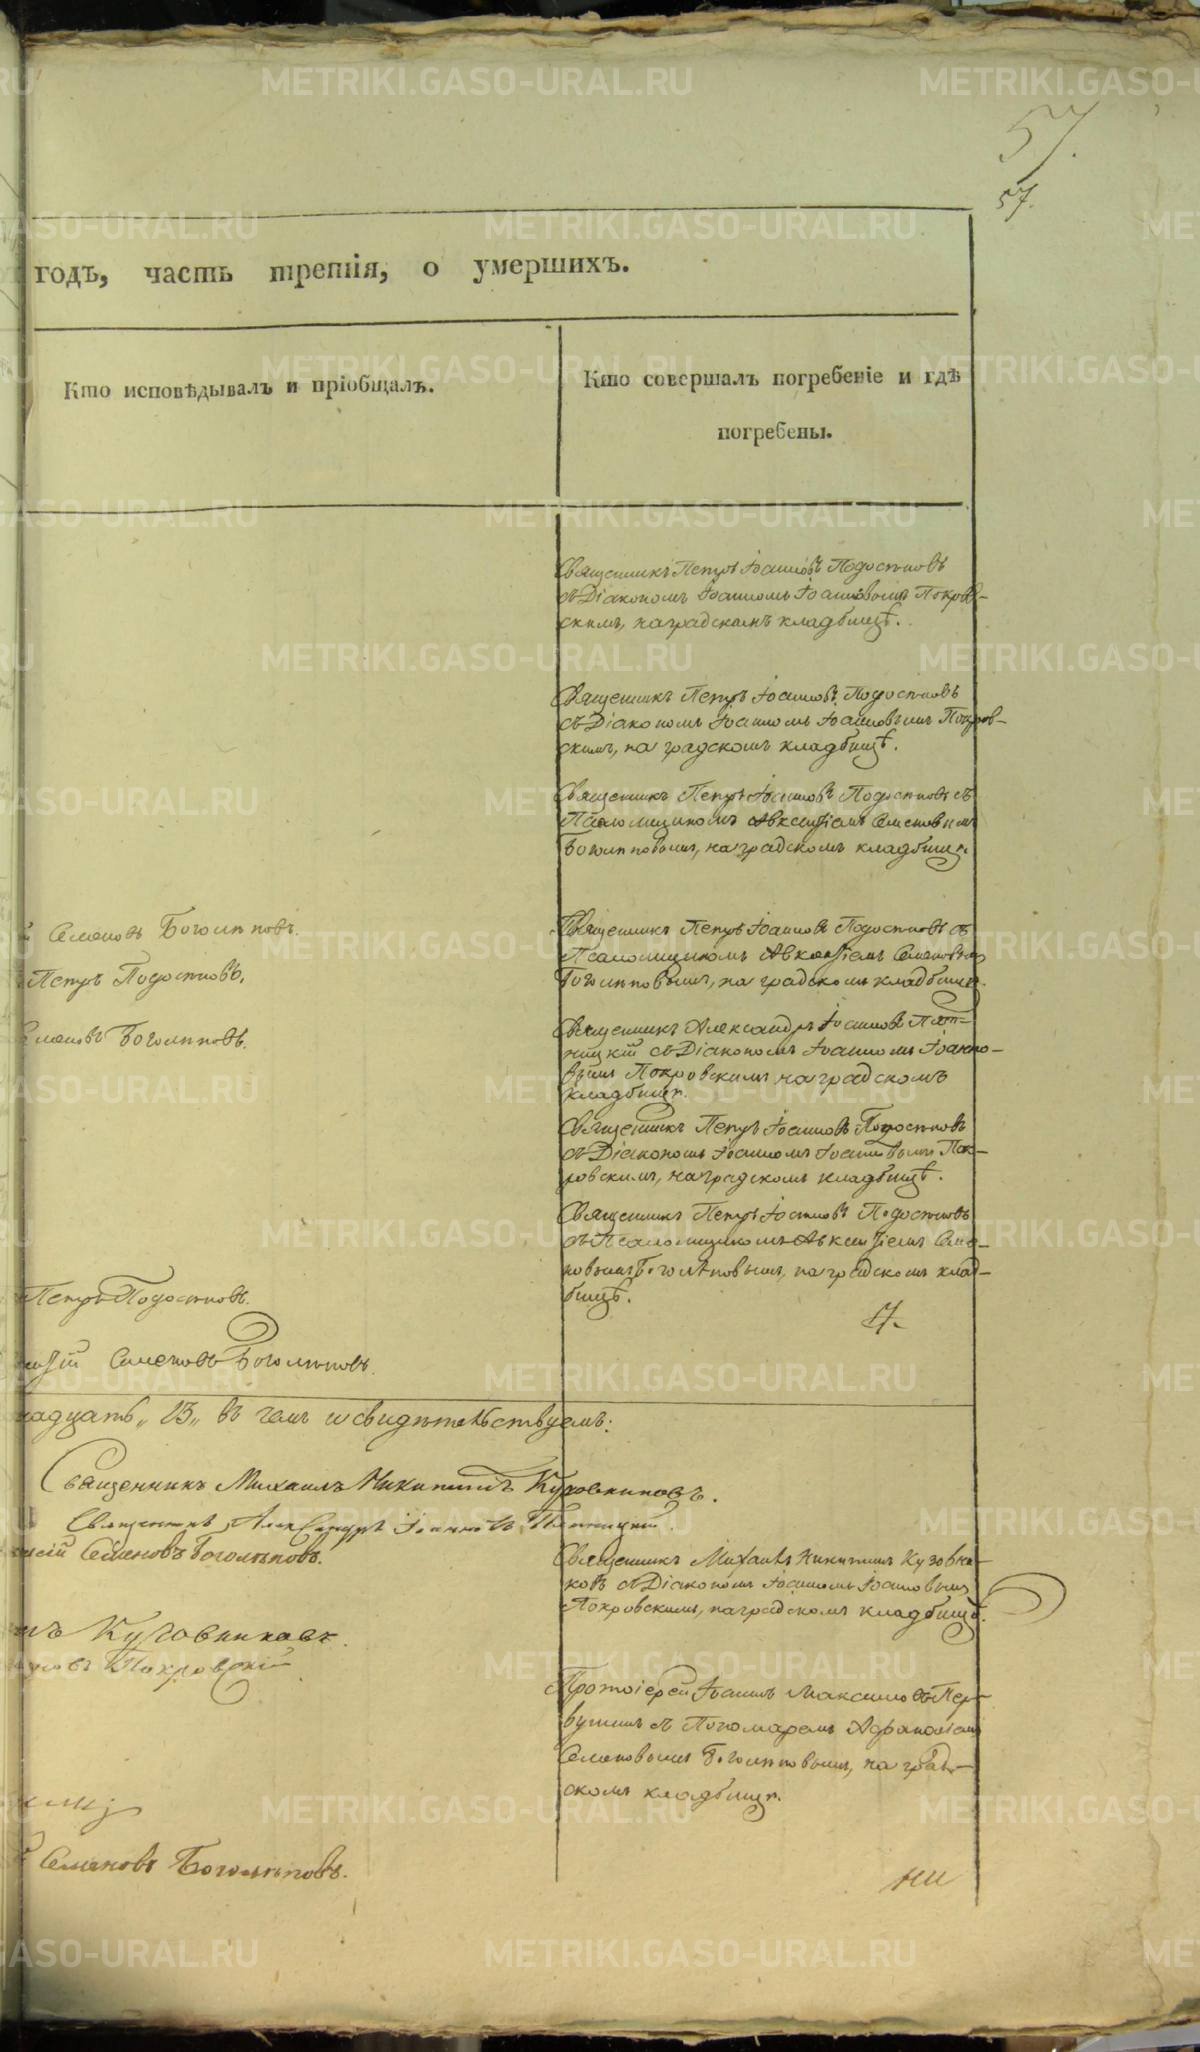 57.
57.
годъ, часть третія, о умершихъ.
Кто исповѣдывалъ и пріобщалъ.
Кто совершалъ погребеніе и гдѣ
погребены.
Священникъ Петръ Іоанновъ Подосеновъ
съ Діакономъ Іоанномъ Іоанновымъ Покров-
скимъ, на градскомъ кладбищѣ.
Священникъ Петръ Іоанновъ Подосеновъ
съ Діакономъ Іоанномъ Іоанновымъ Покров-
скимъ, на градскомъ кладбищѣ.
Священникъ Петръ Іоанновъ Подосеновъ съ
Псаломщикомъ Авксентіемъ Семеновымъ
Боголѣповымъ, на градскомъ кладбищѣ.
Семеновъ Боголѣповъ.
Петръ Подосеновъ.
Священникъ Петръ Іоанновъ Подосеновъ съ
Псаломщикомъ Авксентіемъ Семеновым
Боголѣповымъ, на градскомъ кладбищѣ.
Боголѣповъ.
Священникъ Александръ Іоанновъ Пят-
ницкій съ Діакономъ Іоанномъ Іоанно-
вымъ Покровскимъ на градскомъ
кладбищѣ.
Священникъ Петръ Іоанновъ Подосеновъ
съ Діакономъ Іоанномъ Іоанновымъ Пок-
ровскимъ, на градскомъ кладбищѣ.
Священникъ Петръ Іоанновъ Подосеновъ
съ Псаломщикомъ Авксентіемъ Семе-
новымъ Боголѣповымъ, на градскомъ клад-
бищѣ.
Петръ Подосеновъ.
Семеновъ Боголѣповъ.
надцать „13„ въ чемъ и свидѣтельствуемъ:
Священникъ Михаилъ Никитинъ Кузовниковъ.
Священникъ Александръ Іоанновъ Пятницкій.
Семеновъ Боголѣповъ.
Священникъ Михаилъ Никитинъ Кузовни-
ковъ съ Діакономъ Іоанномъ Іоанновымъ
Покровскимъ, на градскомъ кладбищѣ.
Кузовниковъ.
Покровскій
Протоіерей Іоаннъ Максимовъ Пер-
вушинъ съ Пономаремъ Афанасіем
Семеновымъ Боголѣповымъ, на град-
скомъ кладбищѣ.
Семеновъ Боголѣповъ.
ни
METRIKI.GASO-URAL.RU